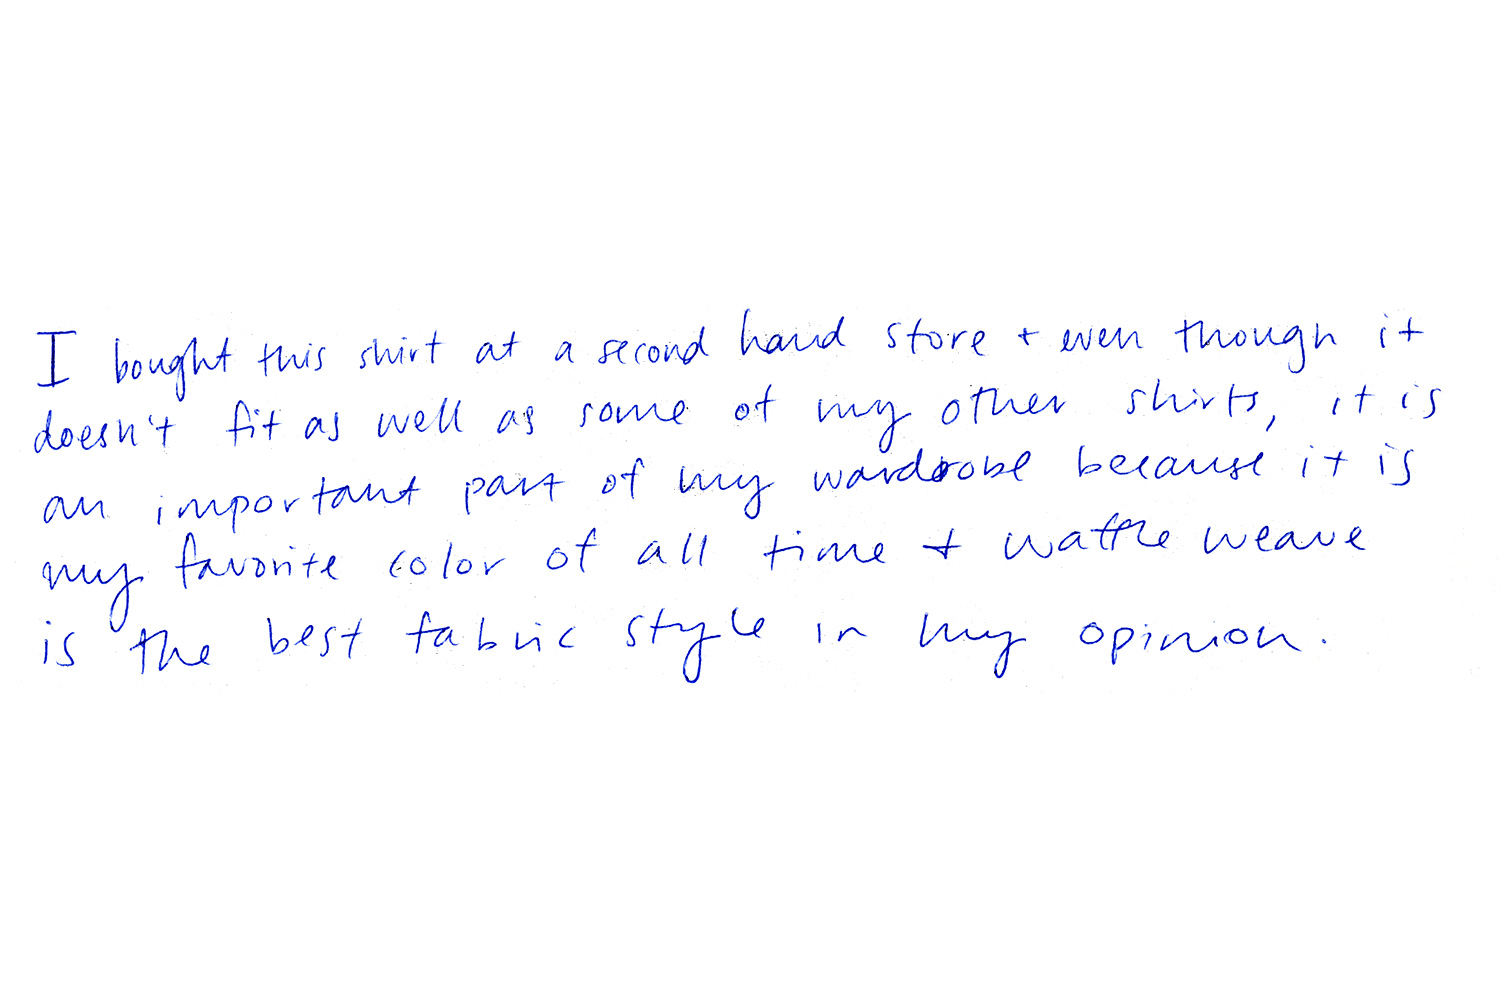 I bought this shirt at a second hand store + even though it
doesn't fit as well as some of my other shirts, it is
an important part of my wardrobe because it is
my favorite color of all time + waffle weave
is the best fabric style in my opinion.